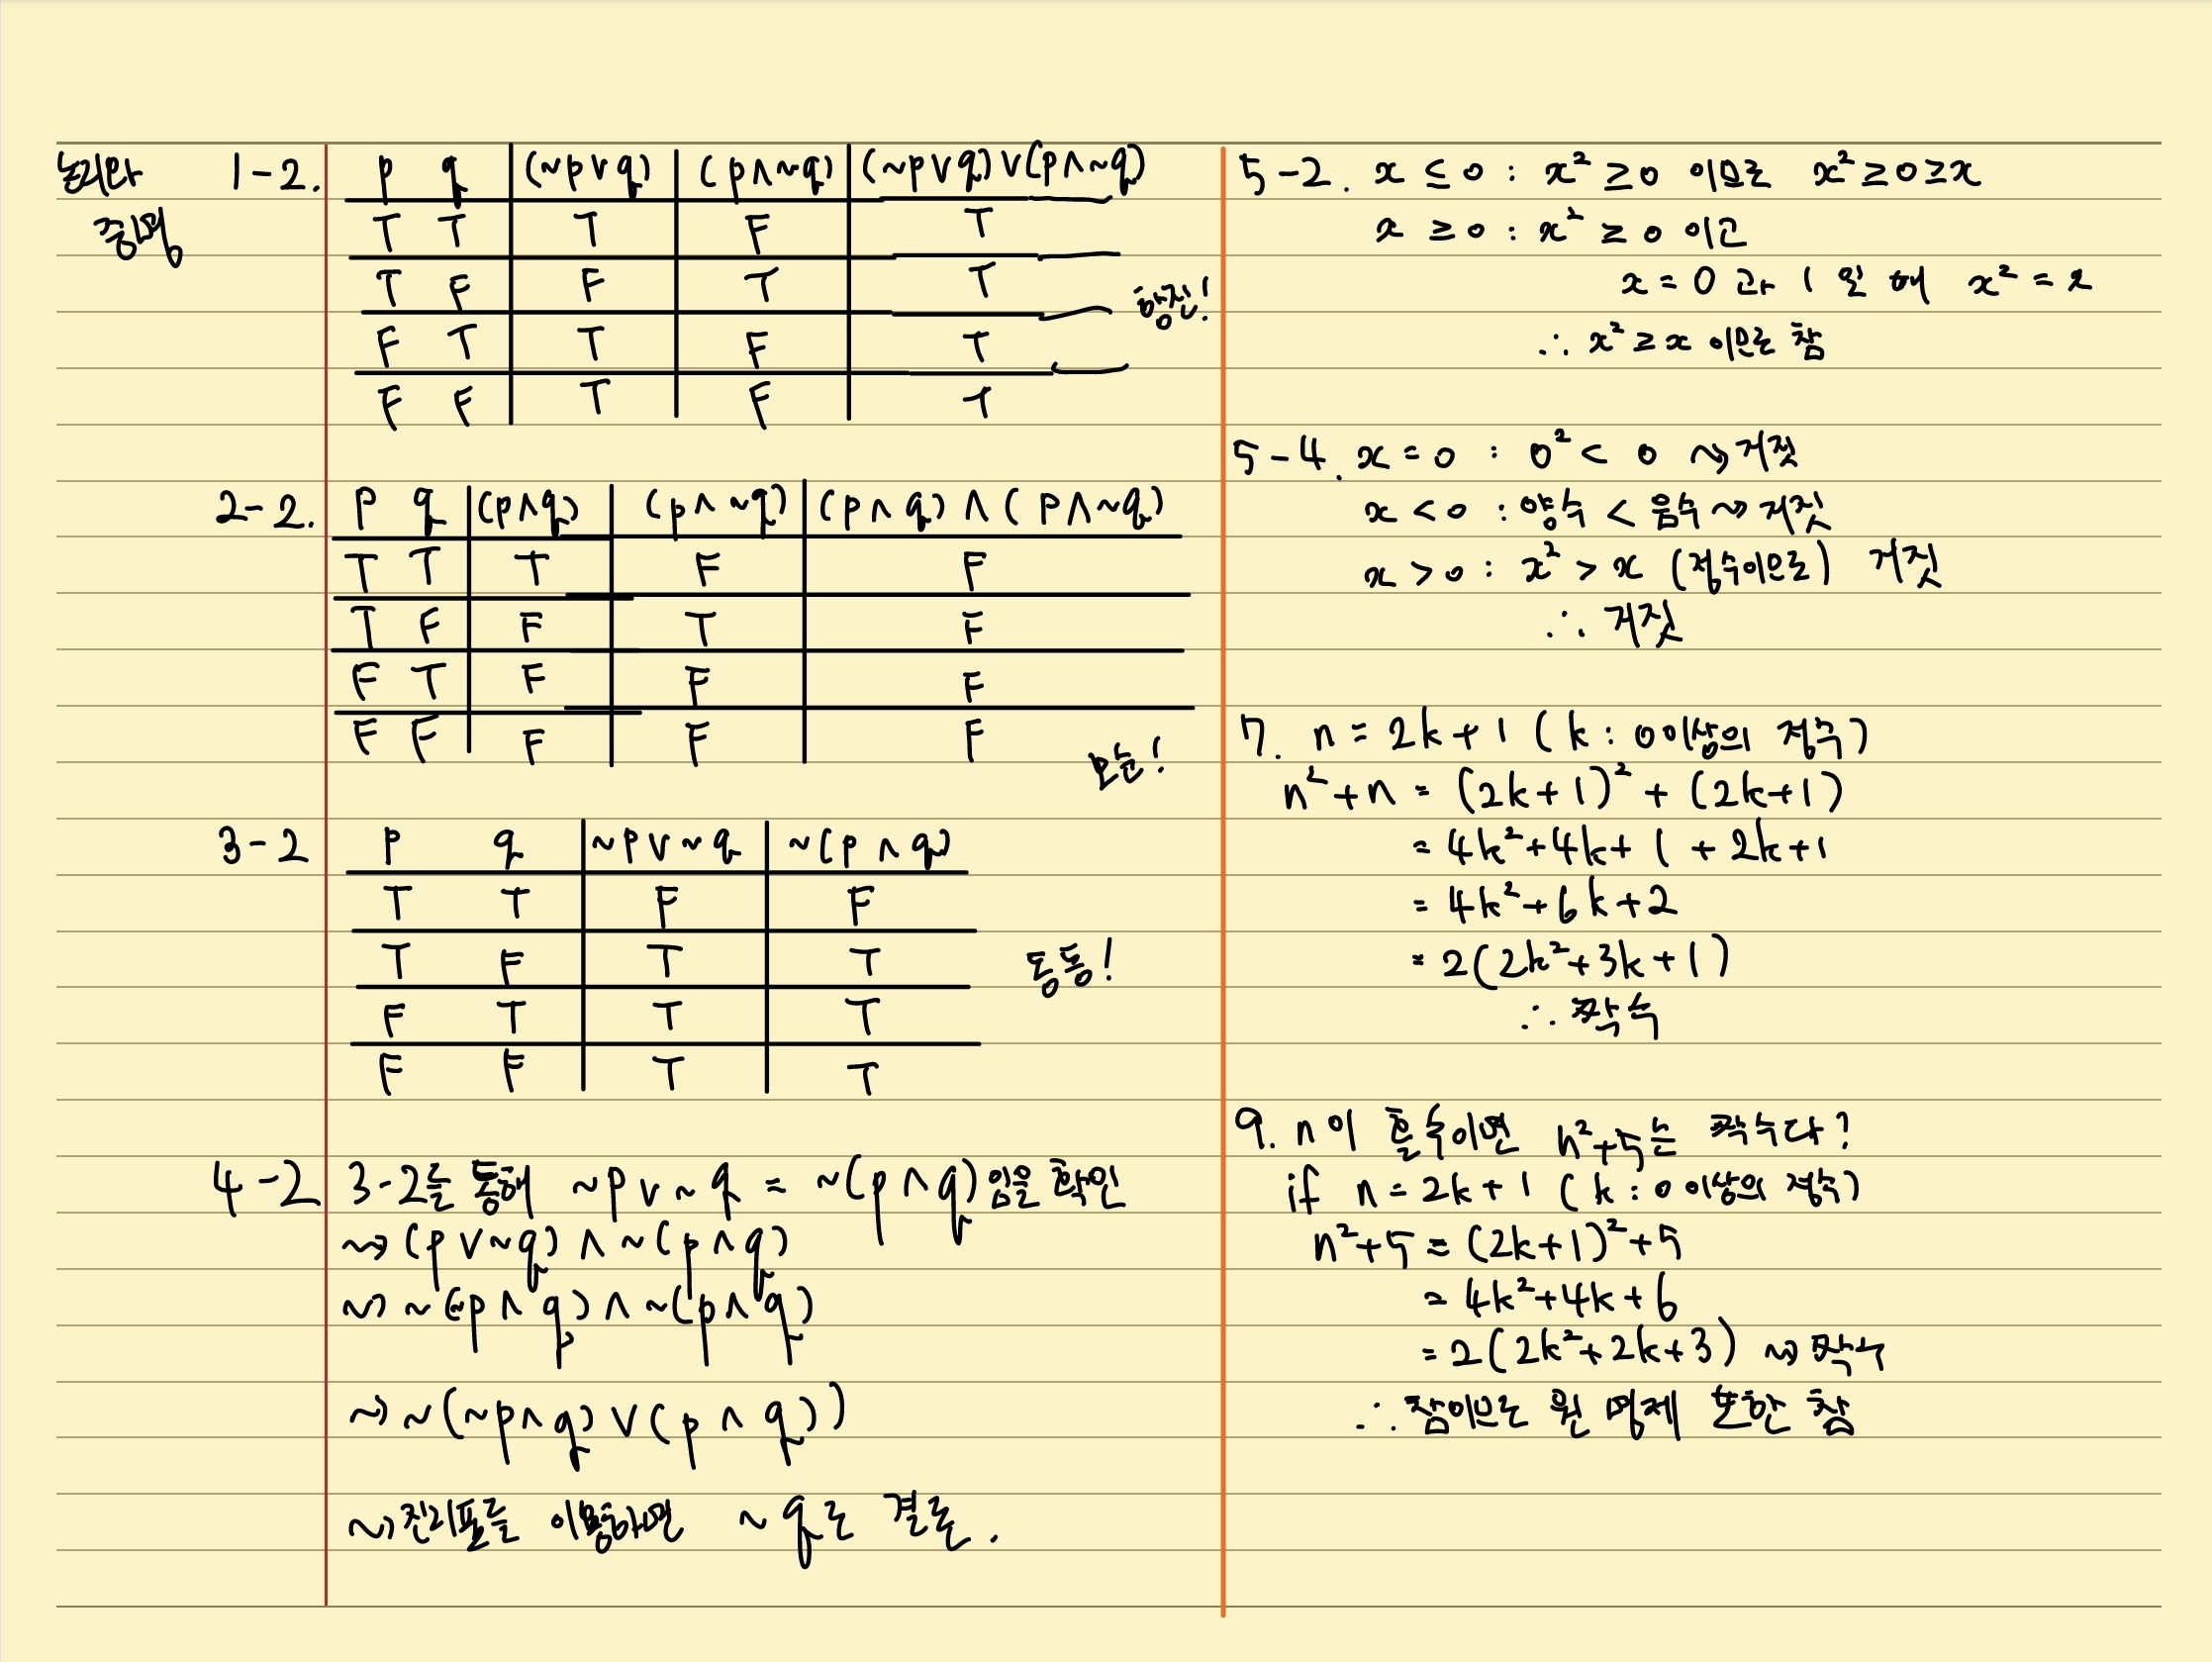 논리와
증명
1-2.
p q (~p∨q) (p∧~q) (~p∨q)∨(p∧~q)
T T T F T
T F F T T
항진!
F T T F T
F F T F T
2-2.
p q (p∧q) (p∧~q) (p∧q)∧(p∧~q)
T T T F F
T F F T F
F T F F F
F F F F F
모순!
3-2
p q ~p∨~q ~(p∧q)
T T F F
T F T T
동등!
F T T T
F F T T
4-2 3-2를 통해 ~p∨~q = ~(p∧q)임을 확인
⇝ (p∨~q)∧~(p∧q)
⇝ ~(~p∧q)∧~(p∧q)
⇝ ~(~p∧q)∨(p∧q))
⇝ 진리표를 이용하면 ~q로 결론.
5-2. x≤0 : x²≥0 이므로 x²≥0≥x
x≥0 : x²≥0 이고
x=0 과 1 일 때 x²=x
∴ x²≥x 이므로 참
5-4. x=0 : 0²<0 ⇝ 거짓
x<0 : 양수 < 음수 ⇝ 거짓
x>0 : x²>x (정수이므로) 거짓
∴ 거짓
7. n=2k+1 (k : 0이상의 정수)
n²+n = (2k+1)²+(2k+1)
= 4k²+4k+1+2k+1
= 4k²+6k+2
= 2(2k²+3k+1)
∴ 짝수
9. n이 홀수이면 n²+5는 짝수다?
if n=2k+1 (k : 0이상의 정수)
n²+5 = (2k+1)²+5
= 4k²+4k+6
= 2(2k²+2k+3) ⇝ 짝수
∴ 참이므로 원 명제 또한 참